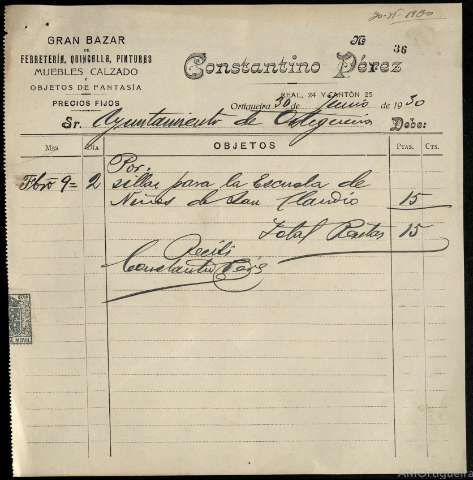 30-VI-1930
GRAN BAZAR
DE
FERRETERÍA, QUINCALLA, PINTURAS
MUEBLES CALZADO
Y
OBJETOS DE FANTASÍA
PRECIOS FIJOS
N 36
Constantino Pérez
REAL, 24 Y CANTÓN 25
Ortigueira 30 de Junio de 1930
Sr. Ayuntamiento de Ortigueira Debe:
Mes Día OBJETOS Ptas. Cts.
Por
Fbro 9 = 2 sillas para la Escuela de
Niñas de San Claudio 15
Total Pesetas 15
Recibí
Constantino Pérez
AMOrtigueira